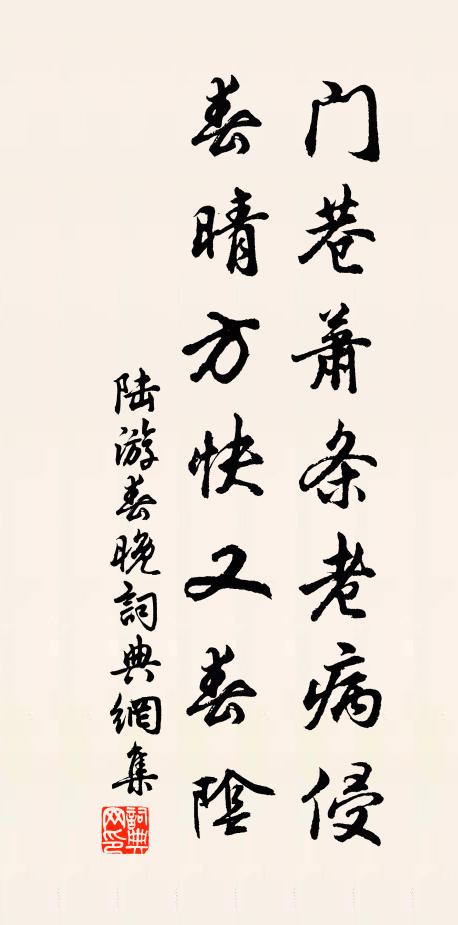 门巷萧条老病侵
春晴方快又春陰
陆游春晚詞典網集
詞典网印